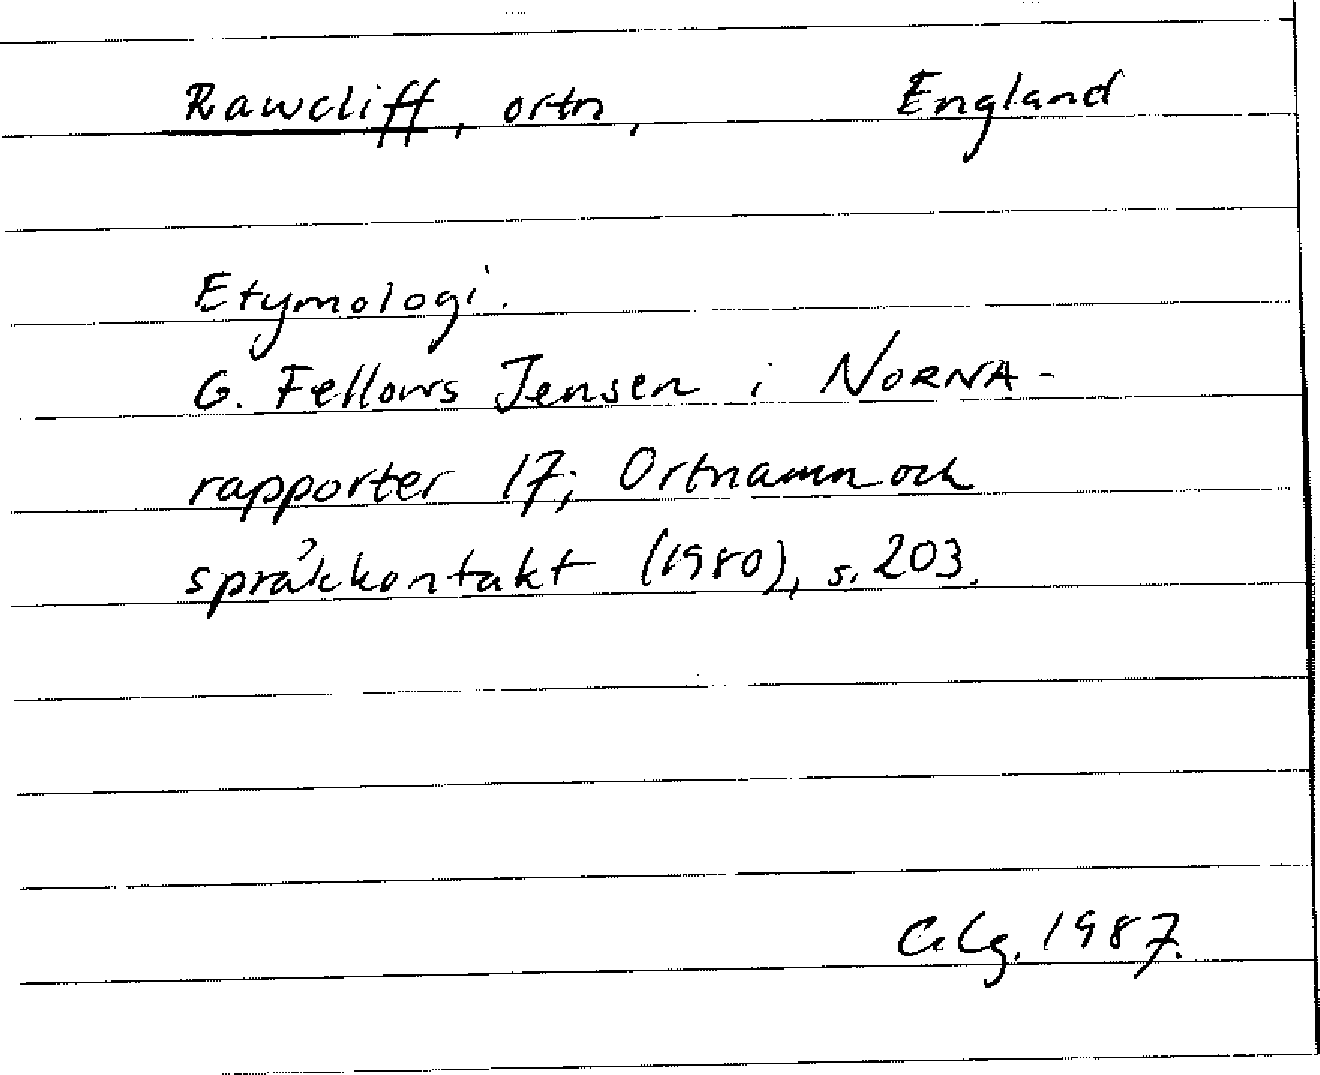 Rawcliff, ortn, England
Etymologi.
G. Fellows Jensen i NORNA-
rapporter 17; Ortnamn och
språkkontakt (1980), s. 203.
C.Lg. 1987.